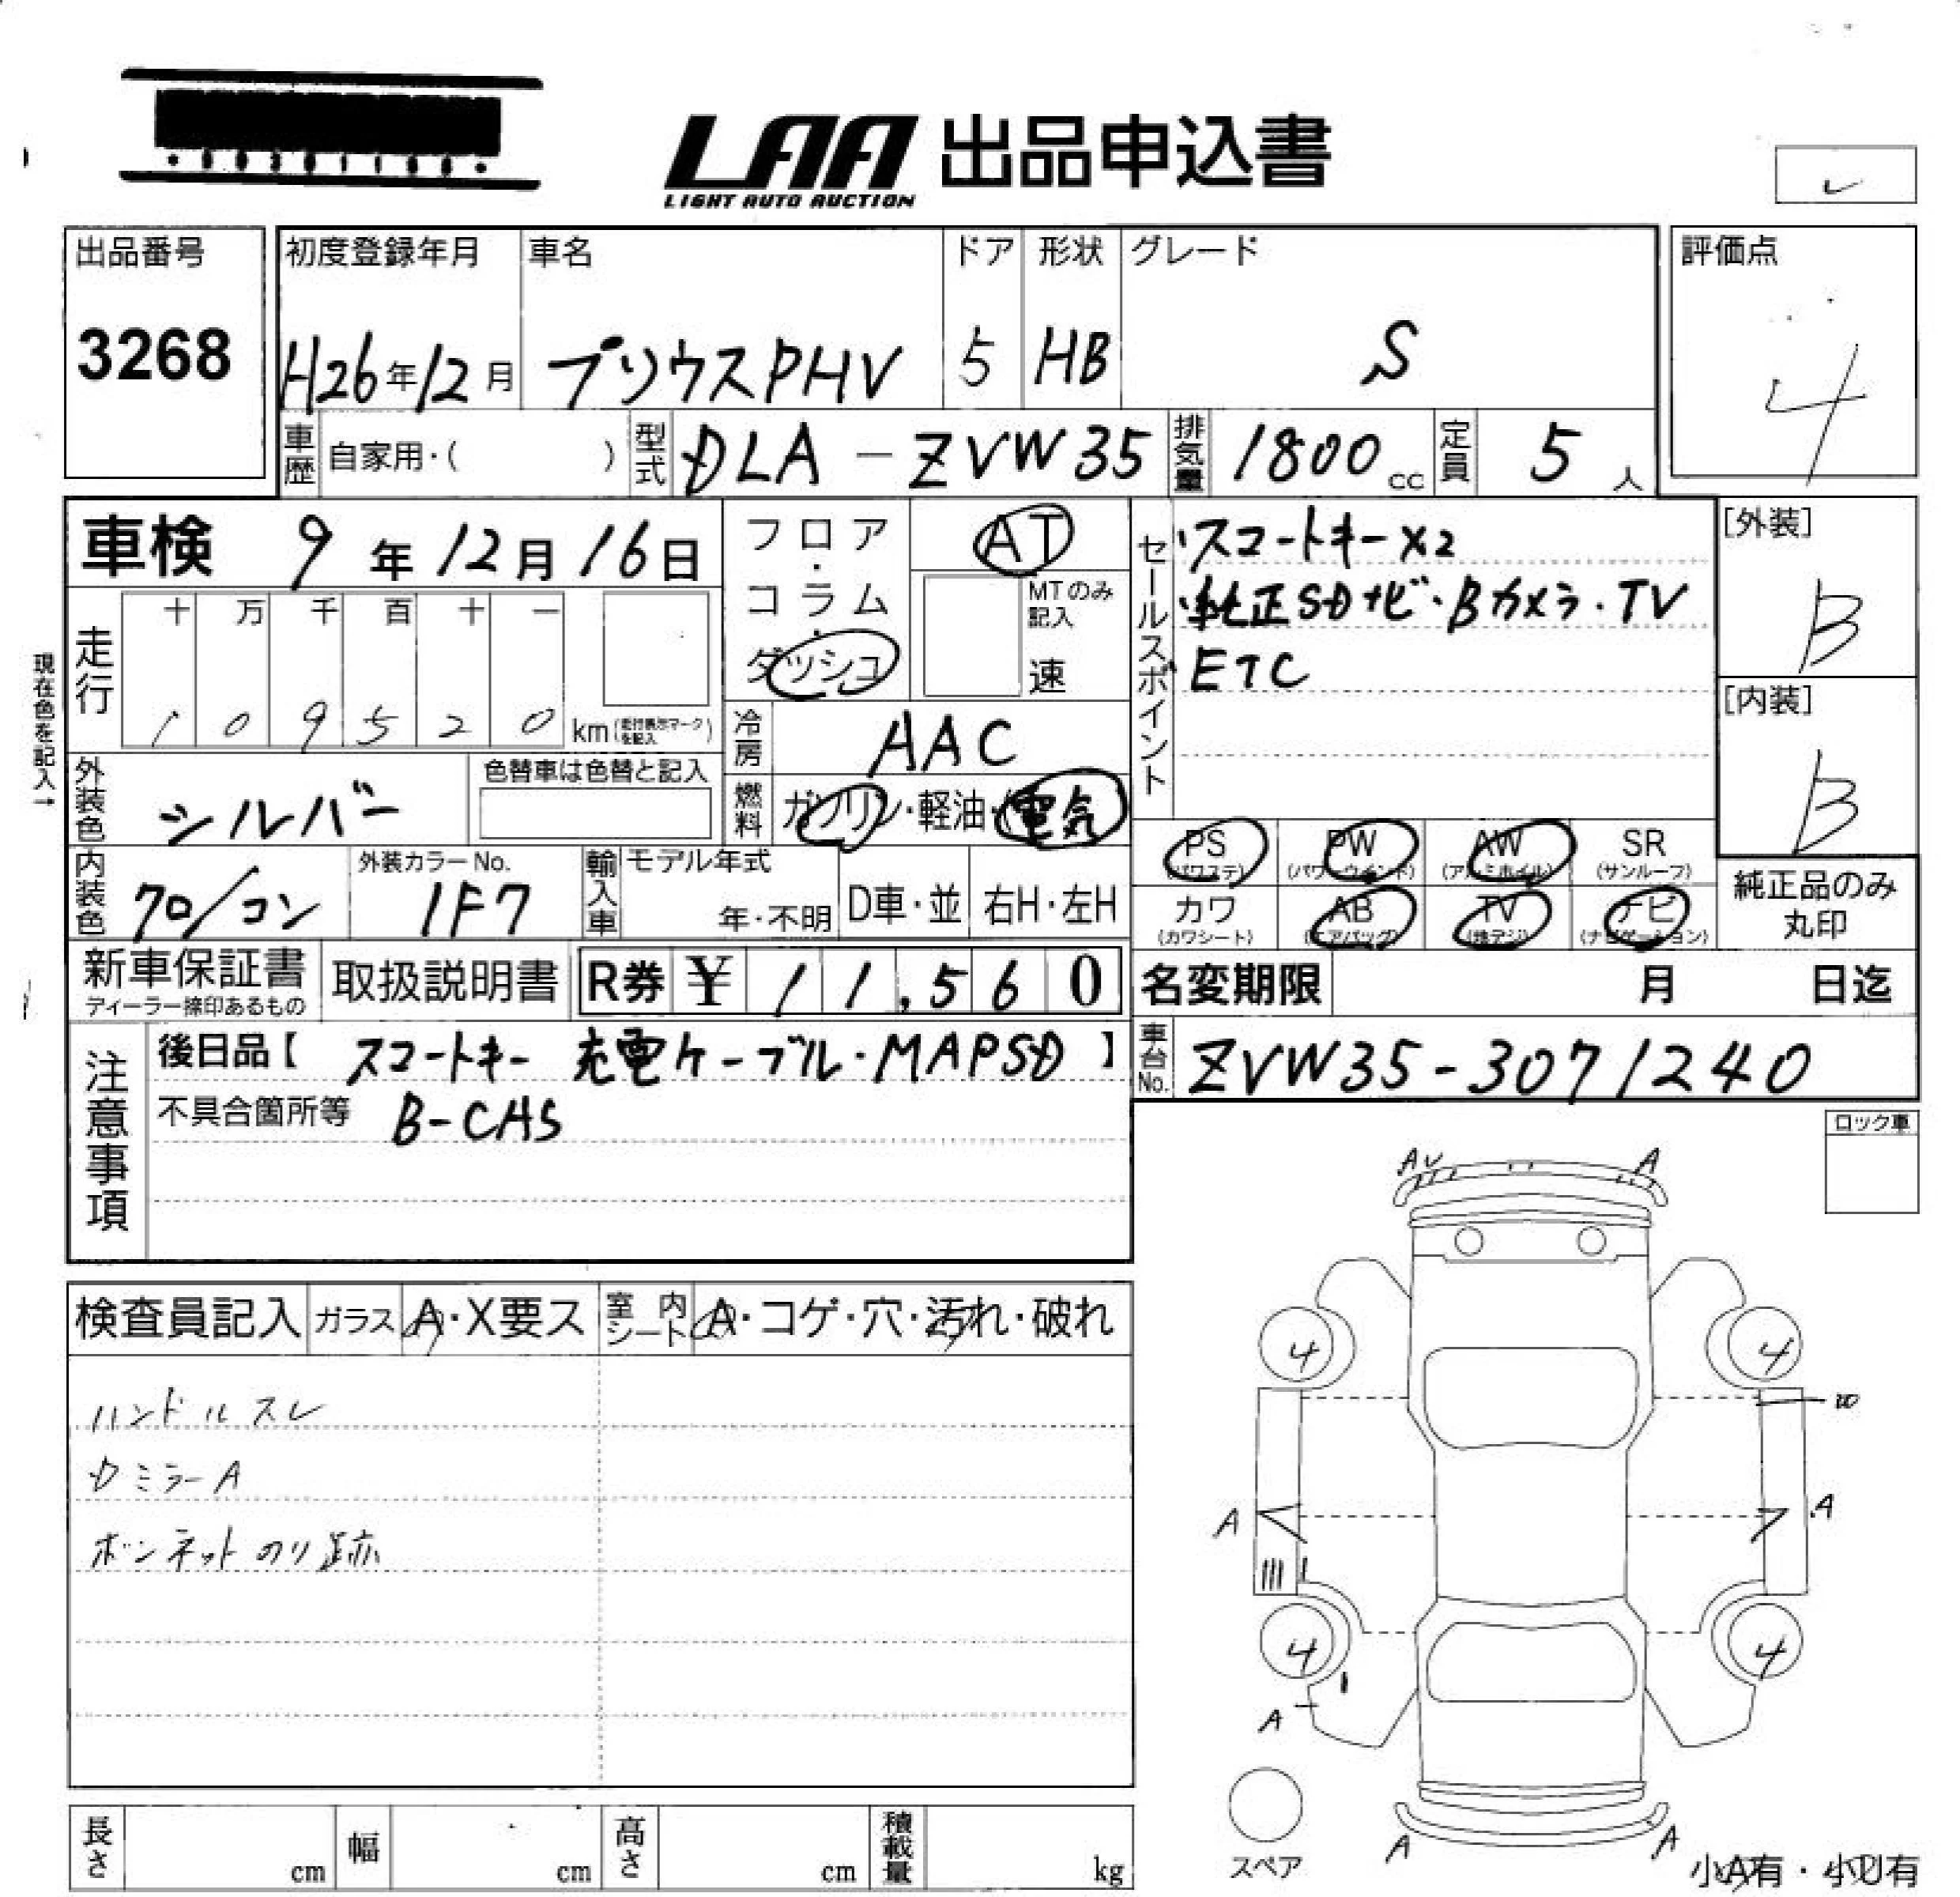 LAA 出品申込書
LIGHT AUTO AUCTION
出品番号
3268
初度登録年月
H26年12月
車名
プリウスPHV
ドア
5
形状
HB
グレード
S
評価点
4
車歴 自家用・( )
型式 DLA-ZVW35
排気量 1800cc
定員 5人
車検 9年12月16日
フロア・コラム・ダッシュ
AT
MTのみ記入
速
セールスポイント
・スマートキー×2
・純正SDナビ・Bカメラ・TV
・ETC
[外装]
B
[内装]
B
現在色を記入→
走行
十 万 千 百 十 一
1 0 9 5 2 0 km(走行表示マークを記入)
冷房 AAC
外装色 シルバー
色替車は色替と記入
燃料 ガソリン・軽油・(電気)
PS (パワステ)
PW (パワーウインド)
AW (アルミホイル)
SR (サンルーフ)
カワ (カワシート)
AB (エアバッグ)
TV (地デジ)
ナビ (ナビゲーション)
純正品のみ丸印
内装色 クロ/コン
外装カラーNo.
1F7
輸入車
モデル年式
年・不明
D車・並
右H・左H
新車保証書
ディーラー捺印あるもの
取扱説明書
R券 ¥11,560
名変期限 月 日迄
注意事項
後日品【 スマートキー 充電ケーブル・MAPSD 】
不具合箇所等 B-CAS
車台No. ZVW35-3071240
ロック車
検査員記入
ガラス A・X要ス
室内シート A・コゲ・穴・汚れ・破れ
ハンドルスレ
Dミラー A
ボンネットのり跡
AU
A
4
4
A
A
4
4
A
A
A
スペア
小A有・小U有
長さ cm
幅 cm
高さ cm
積載量 kg